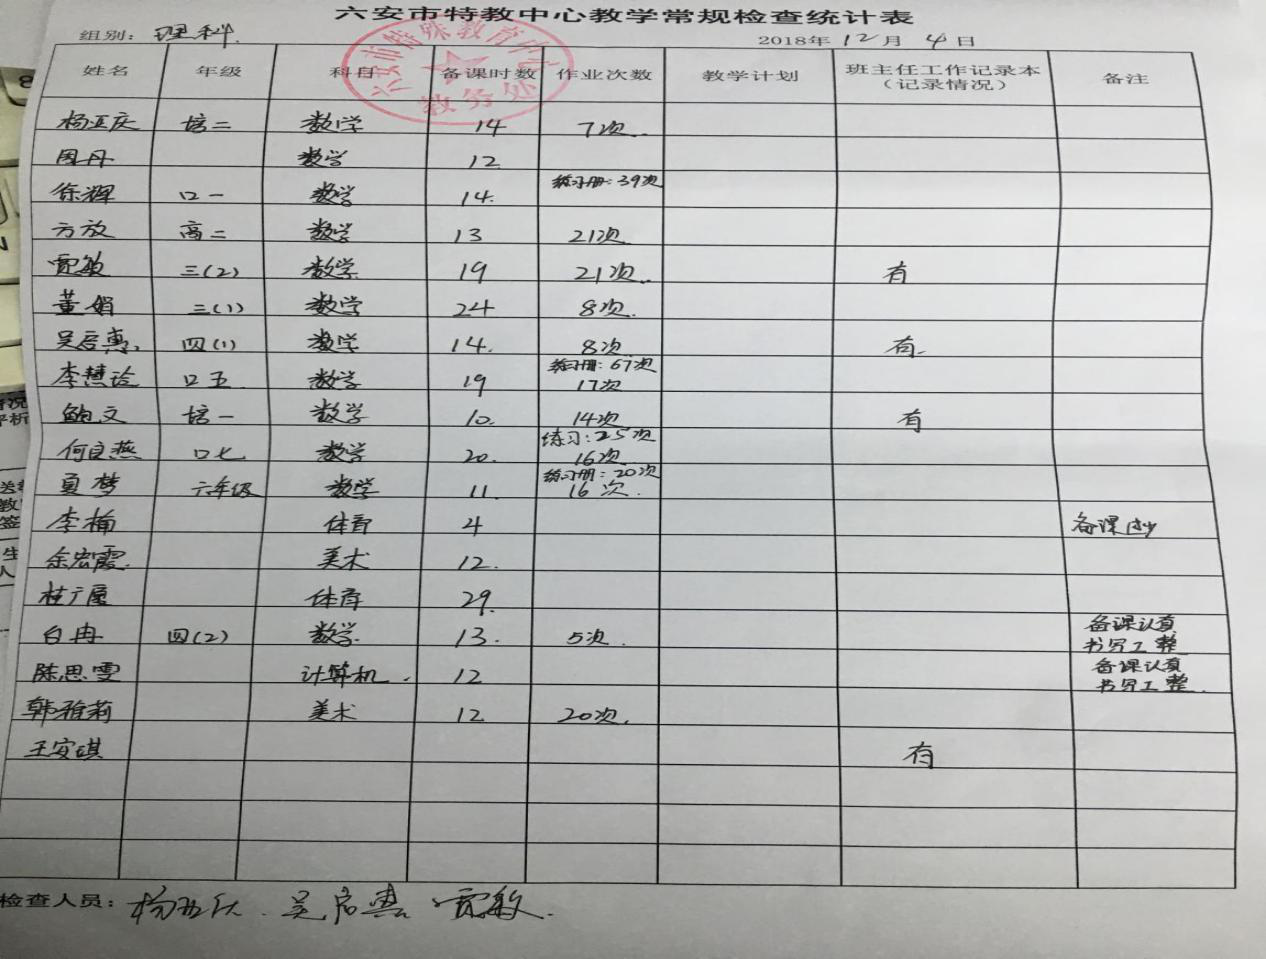 六安市特教中心教学常规检查统计表
组别: 理科. 2018年 12 月 4 日
姓名 年级 科目 备课时数 作业次数 教学计划 班主任工作记录本（记录情况） 备注
六安市特殊教育中心
教务处
杨正庆 培二 数学 14 7次.
周丹 数学 12
徐辉 口一 数学 14. 练习册: 39次
方放 高二 数学 13 21次
贾敏 三(2) 数学 19 21次.. 有
董娟 三(1) 数学 24 8次.
吴启惠. 四(1) 数学 14. 8次 有.
练习册: 67次
李慧玲 口五 数学 19 17次
鲍文 培一 数学 10. 14次 有
练习: 25次
何良燕 口七 数学 20. 16次
练习册: 20次
夏梦 六年级 数学 11. 16次.
李楠 体育 4 备课少
余宏霞. 美术 12.
桂广厦 体育 29.
白冉 四(2) 数学 13. 5次. 备课认真
书写工整
陈思雯 计算机. 12 备课认真
书写工整.
韩雅莉 美术 12 20次.
王安琪 有
检查人员: 吴启惠 贾敏.